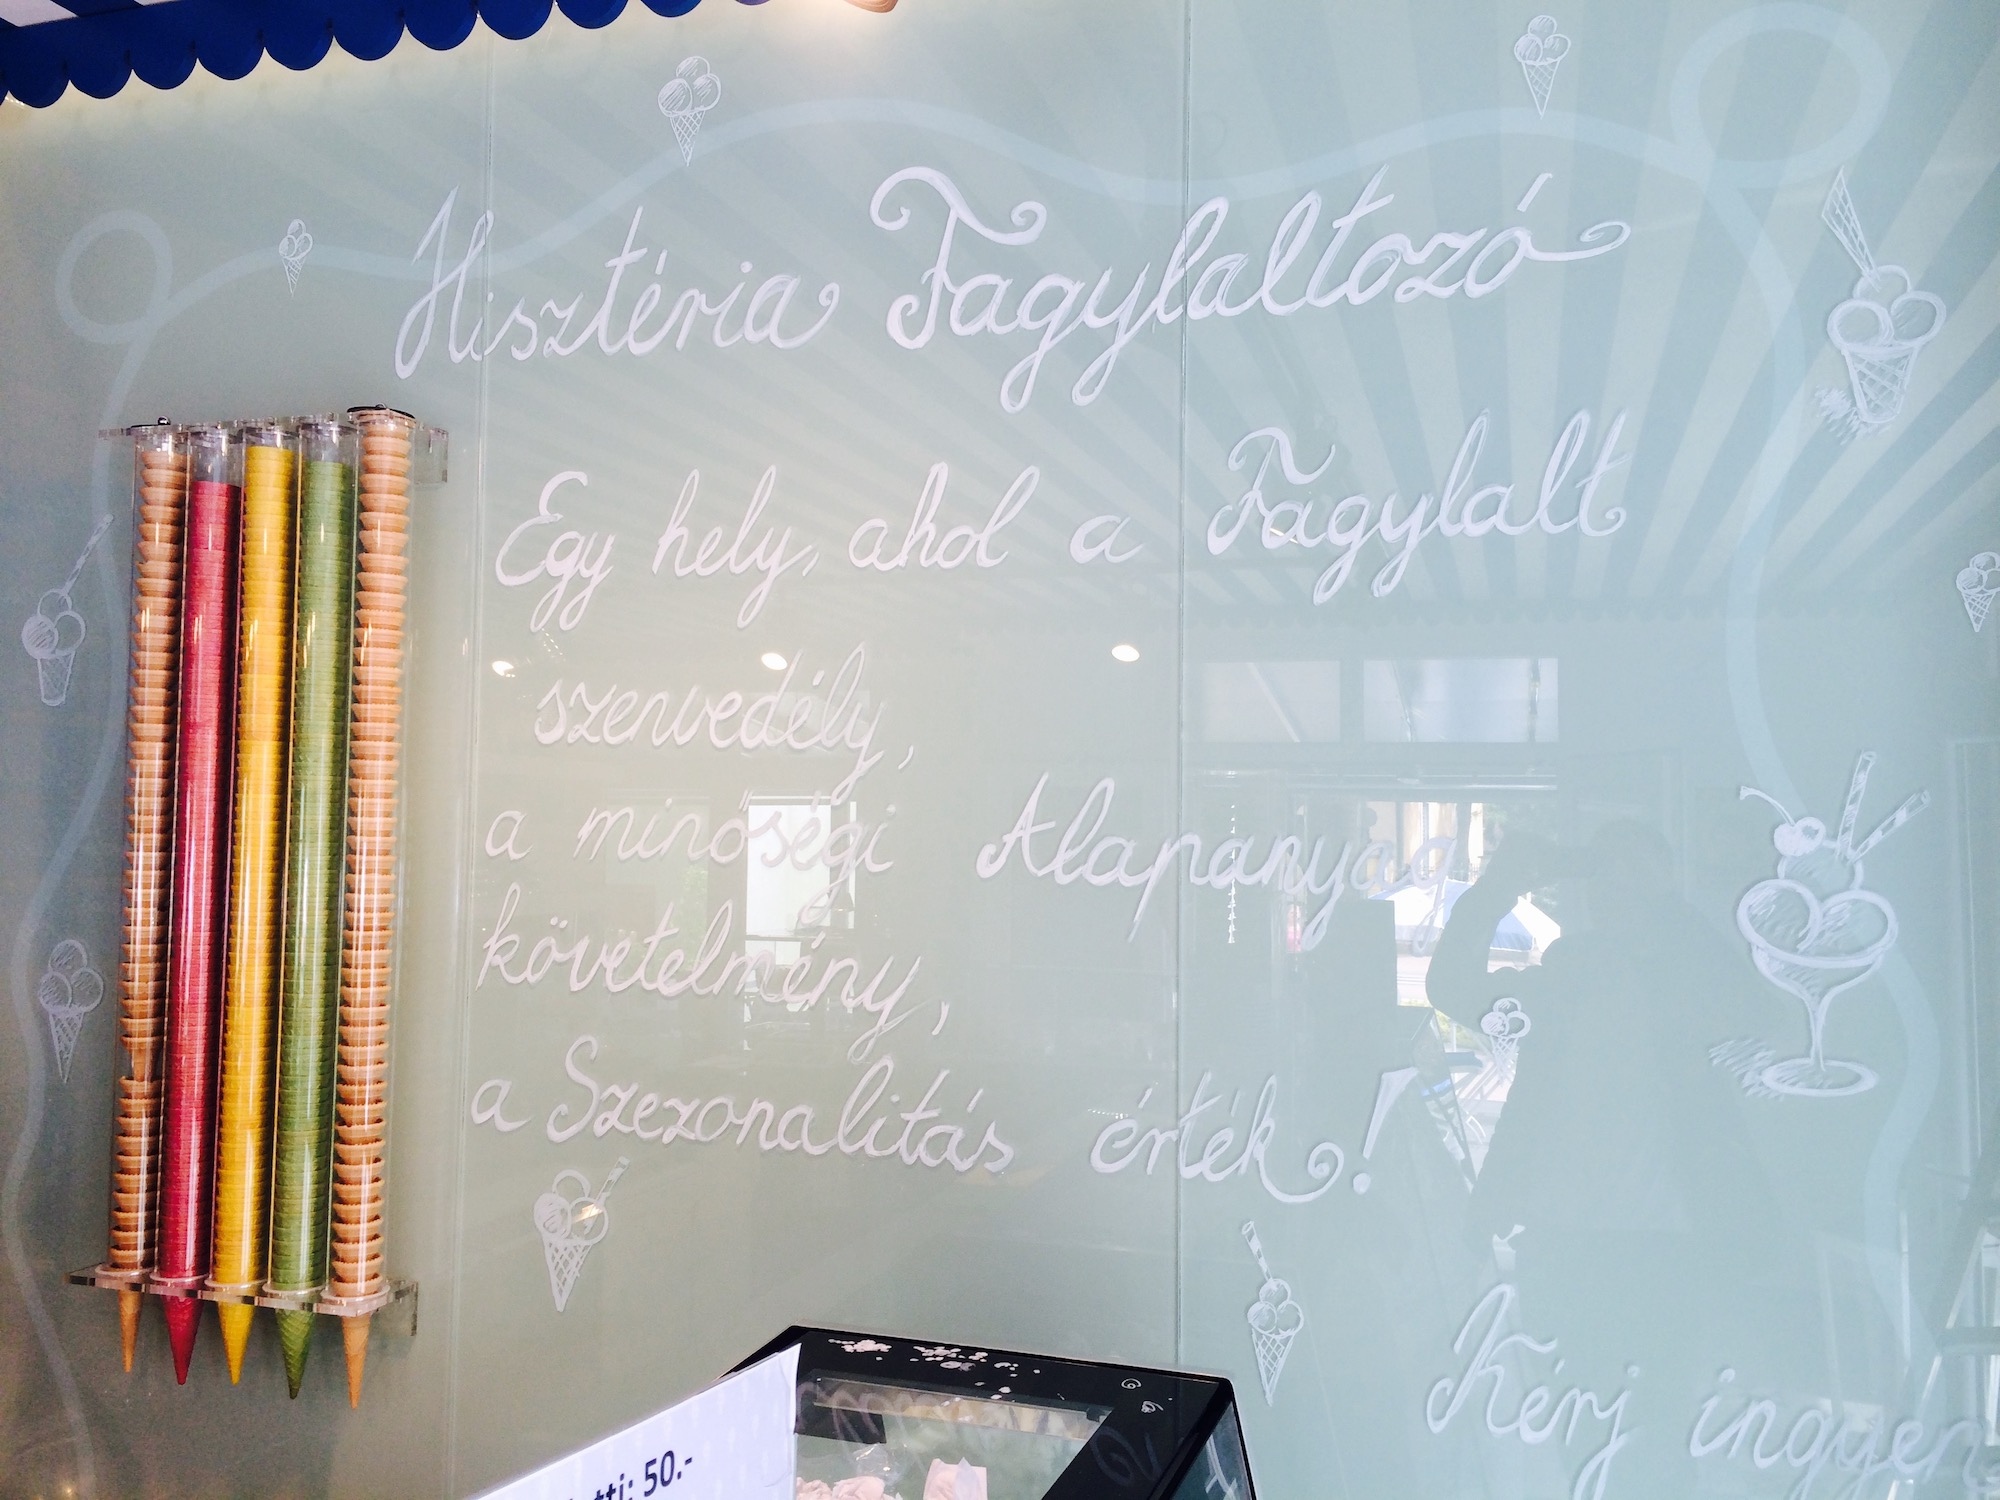 Hisztéria Fagylaltozó
Egy hely, ahol a Fagylalt
szenvedély,
a minőségi Alapanyag
követelmény,
a Szezonalitás érték!
Kérj ingyen
50.-